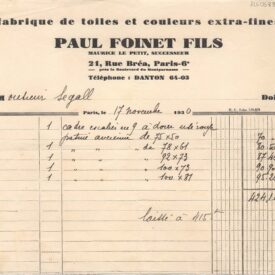 fabrique de toiles et couleurs extra-fines
PAUL FOINET FILS
MAURICE LE PETIT, SUCCESSEUR
21, Rue Bréa, Paris-6e
près le Boulevard du Montparnasse
Téléphone : DANTON 61-03
Monsieur Segall Doi
Paris, le 17 novembre 1930
1 cadre escalier n 9 à dorer
patine ancienne de 75x50
1 " " " de 78x61 30.
1 " " " " 92x73 37.
1 " " " " 100x73 90.
1 " " " " 100x81 95.
424.
laissé à 415